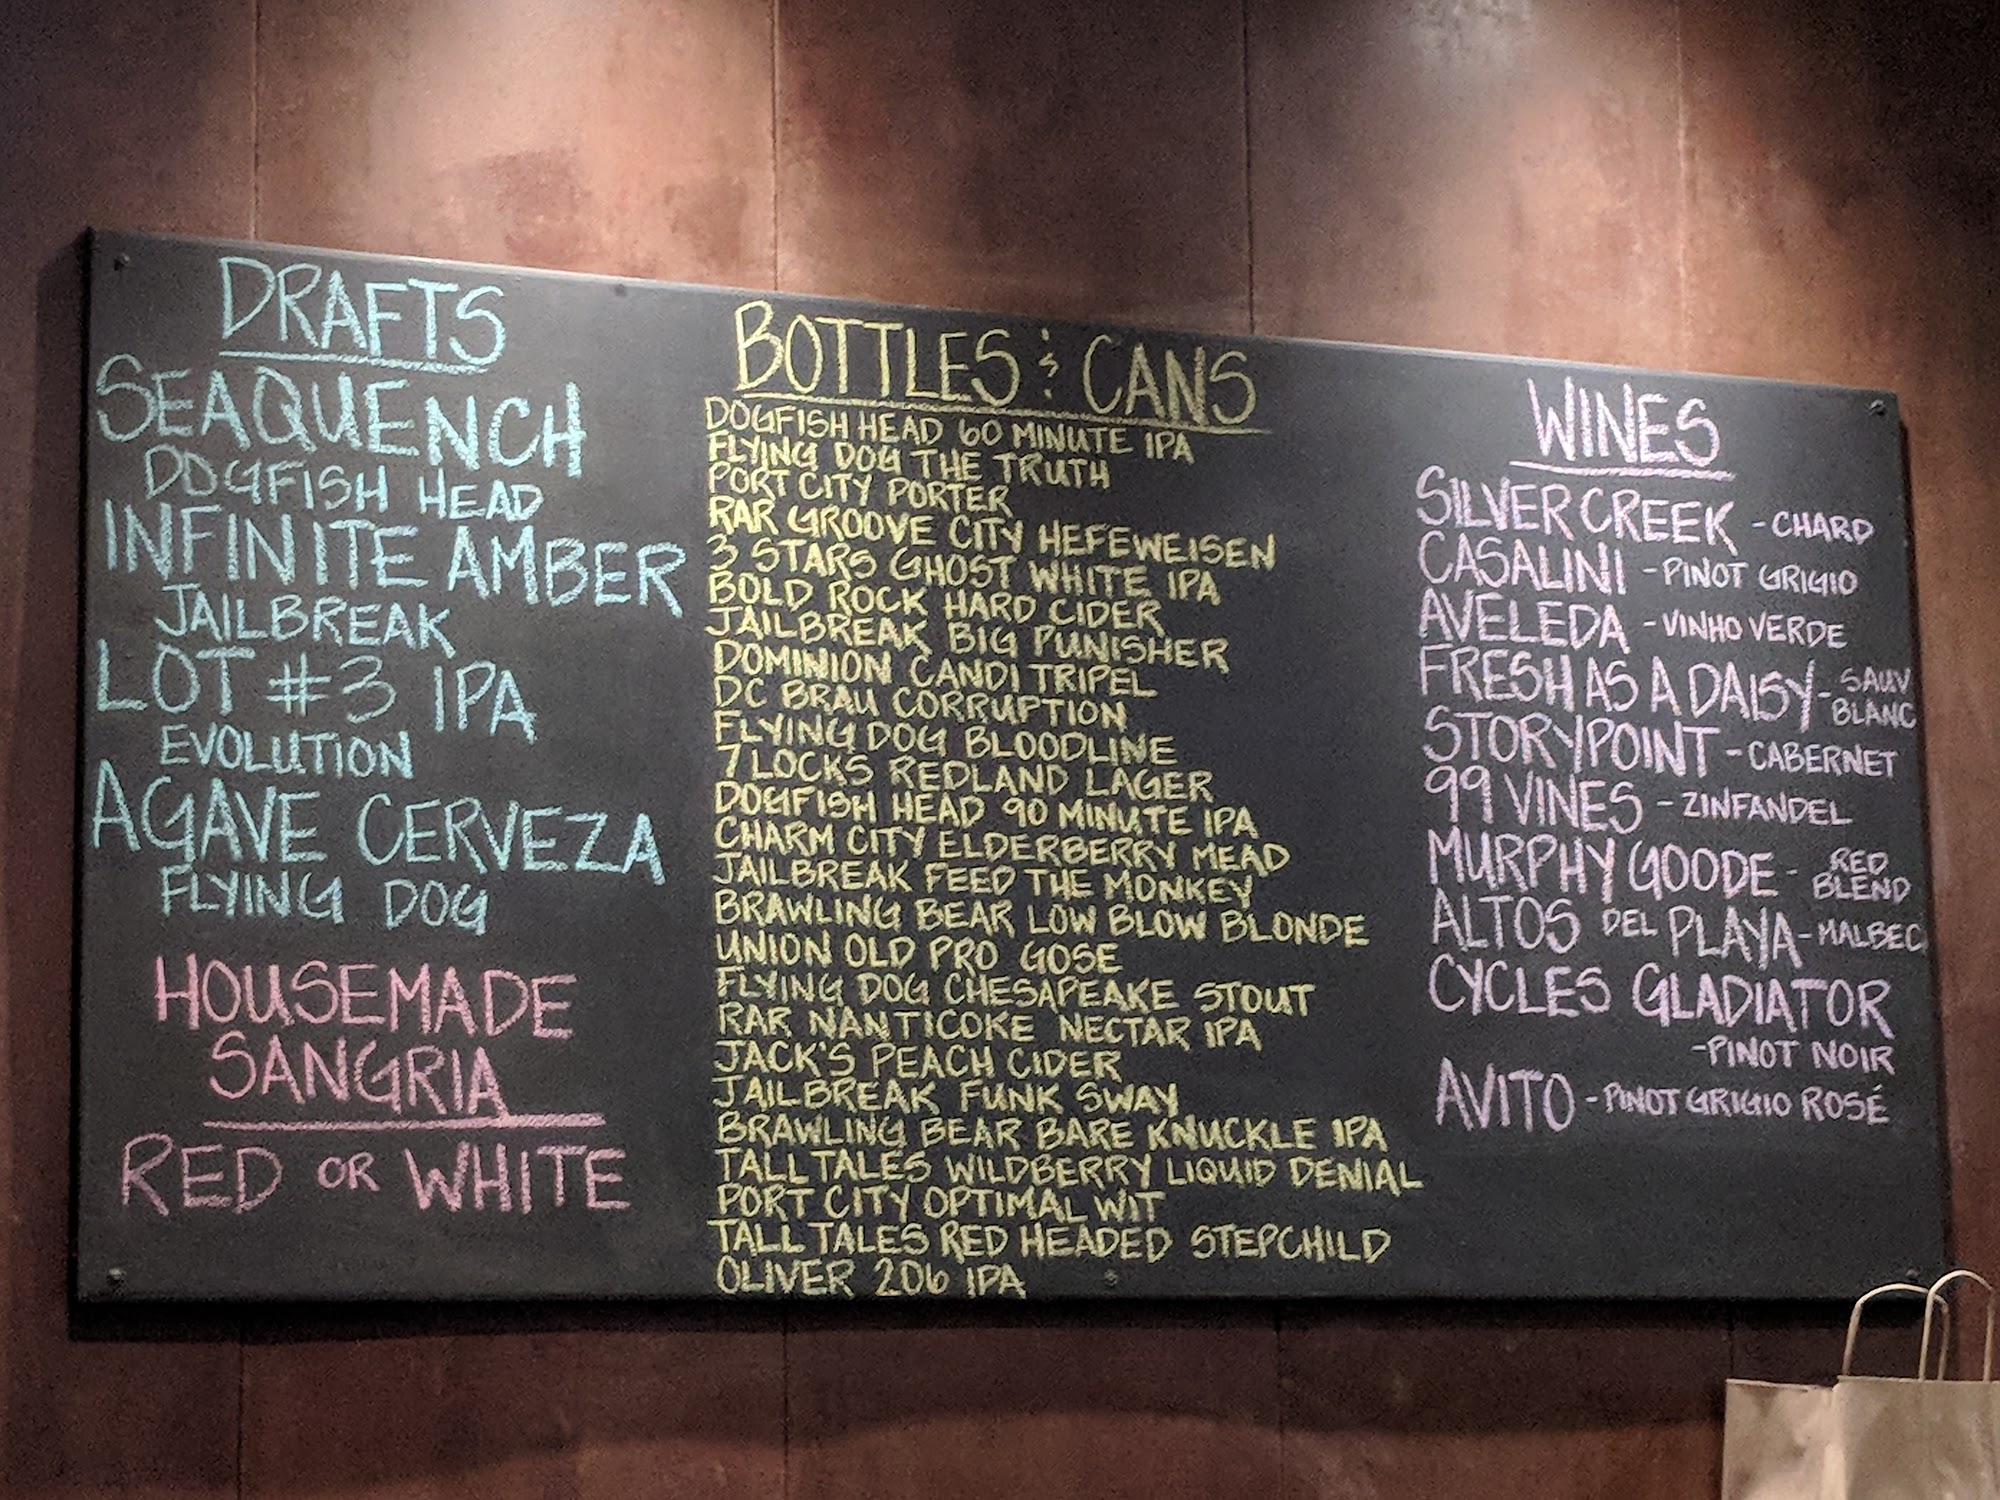 DRAFTS
SEAQUENCH
DOGFISH HEAD
INFINITE AMBER
JAILBREAK
LOT #3 IPA
EVOLUTION
AGAVE CERVEZA
FLYING DOG
HOUSEMADE
SANGRIA
RED OR WHITE
BOTTLES & CANS
DOGFISH HEAD 60 MINUTE IPA
FLYING DOG THE TRUTH
PORT CITY PORTER
RAR GROOVE CITY HEFEWEISEN
3 STARS GHOST WHITE IPA
BOLD ROCK HARD CIDER
JAILBREAK BIG PUNISHER
DOMINION CANDI TRIPEL
DC BRAU CORRUPTION
FLYING DOG BLOODLINE
7 LOCKS REDLAND LAGER
DOGFISH HEAD 90 MINUTE IPA
CHARM CITY ELDERBERRY MEAD
JAILBREAK FEED THE MONKEY
BRAWLING BEAR LOW BLOW BLONDE
UNION OLD PRO GOSE
FLYING DOG CHESAPEAKE STOUT
RAR NANTICOKE NECTAR IPA
JACK'S PEACH CIDER
JAILBREAK FUNK SWAY
BRAWLING BEAR BARE KNUCKLE IPA
TALL TALES WILDBERRY LIQUID DENIAL
PORT CITY OPTIMAL WIT
TALL TALES RED HEADED STEPCHILD
OLIVER 206 IPA
WINES
SILVER CREEK - CHARD
CASALINI - PINOT GRIGIO
AVELEDA - VINHO VERDE
FRESH AS A DAISY - SAUV
BLANC
STORYPOINT - CABERNET
99 VINES - ZINFANDEL
MURPHY GOODE - RED
BLEND
ALTOS DEL PLAYA - MALBEC
CYCLES GLADIATOR
- PINOT NOIR
AVITO - PINOT GRIGIO ROSÉ